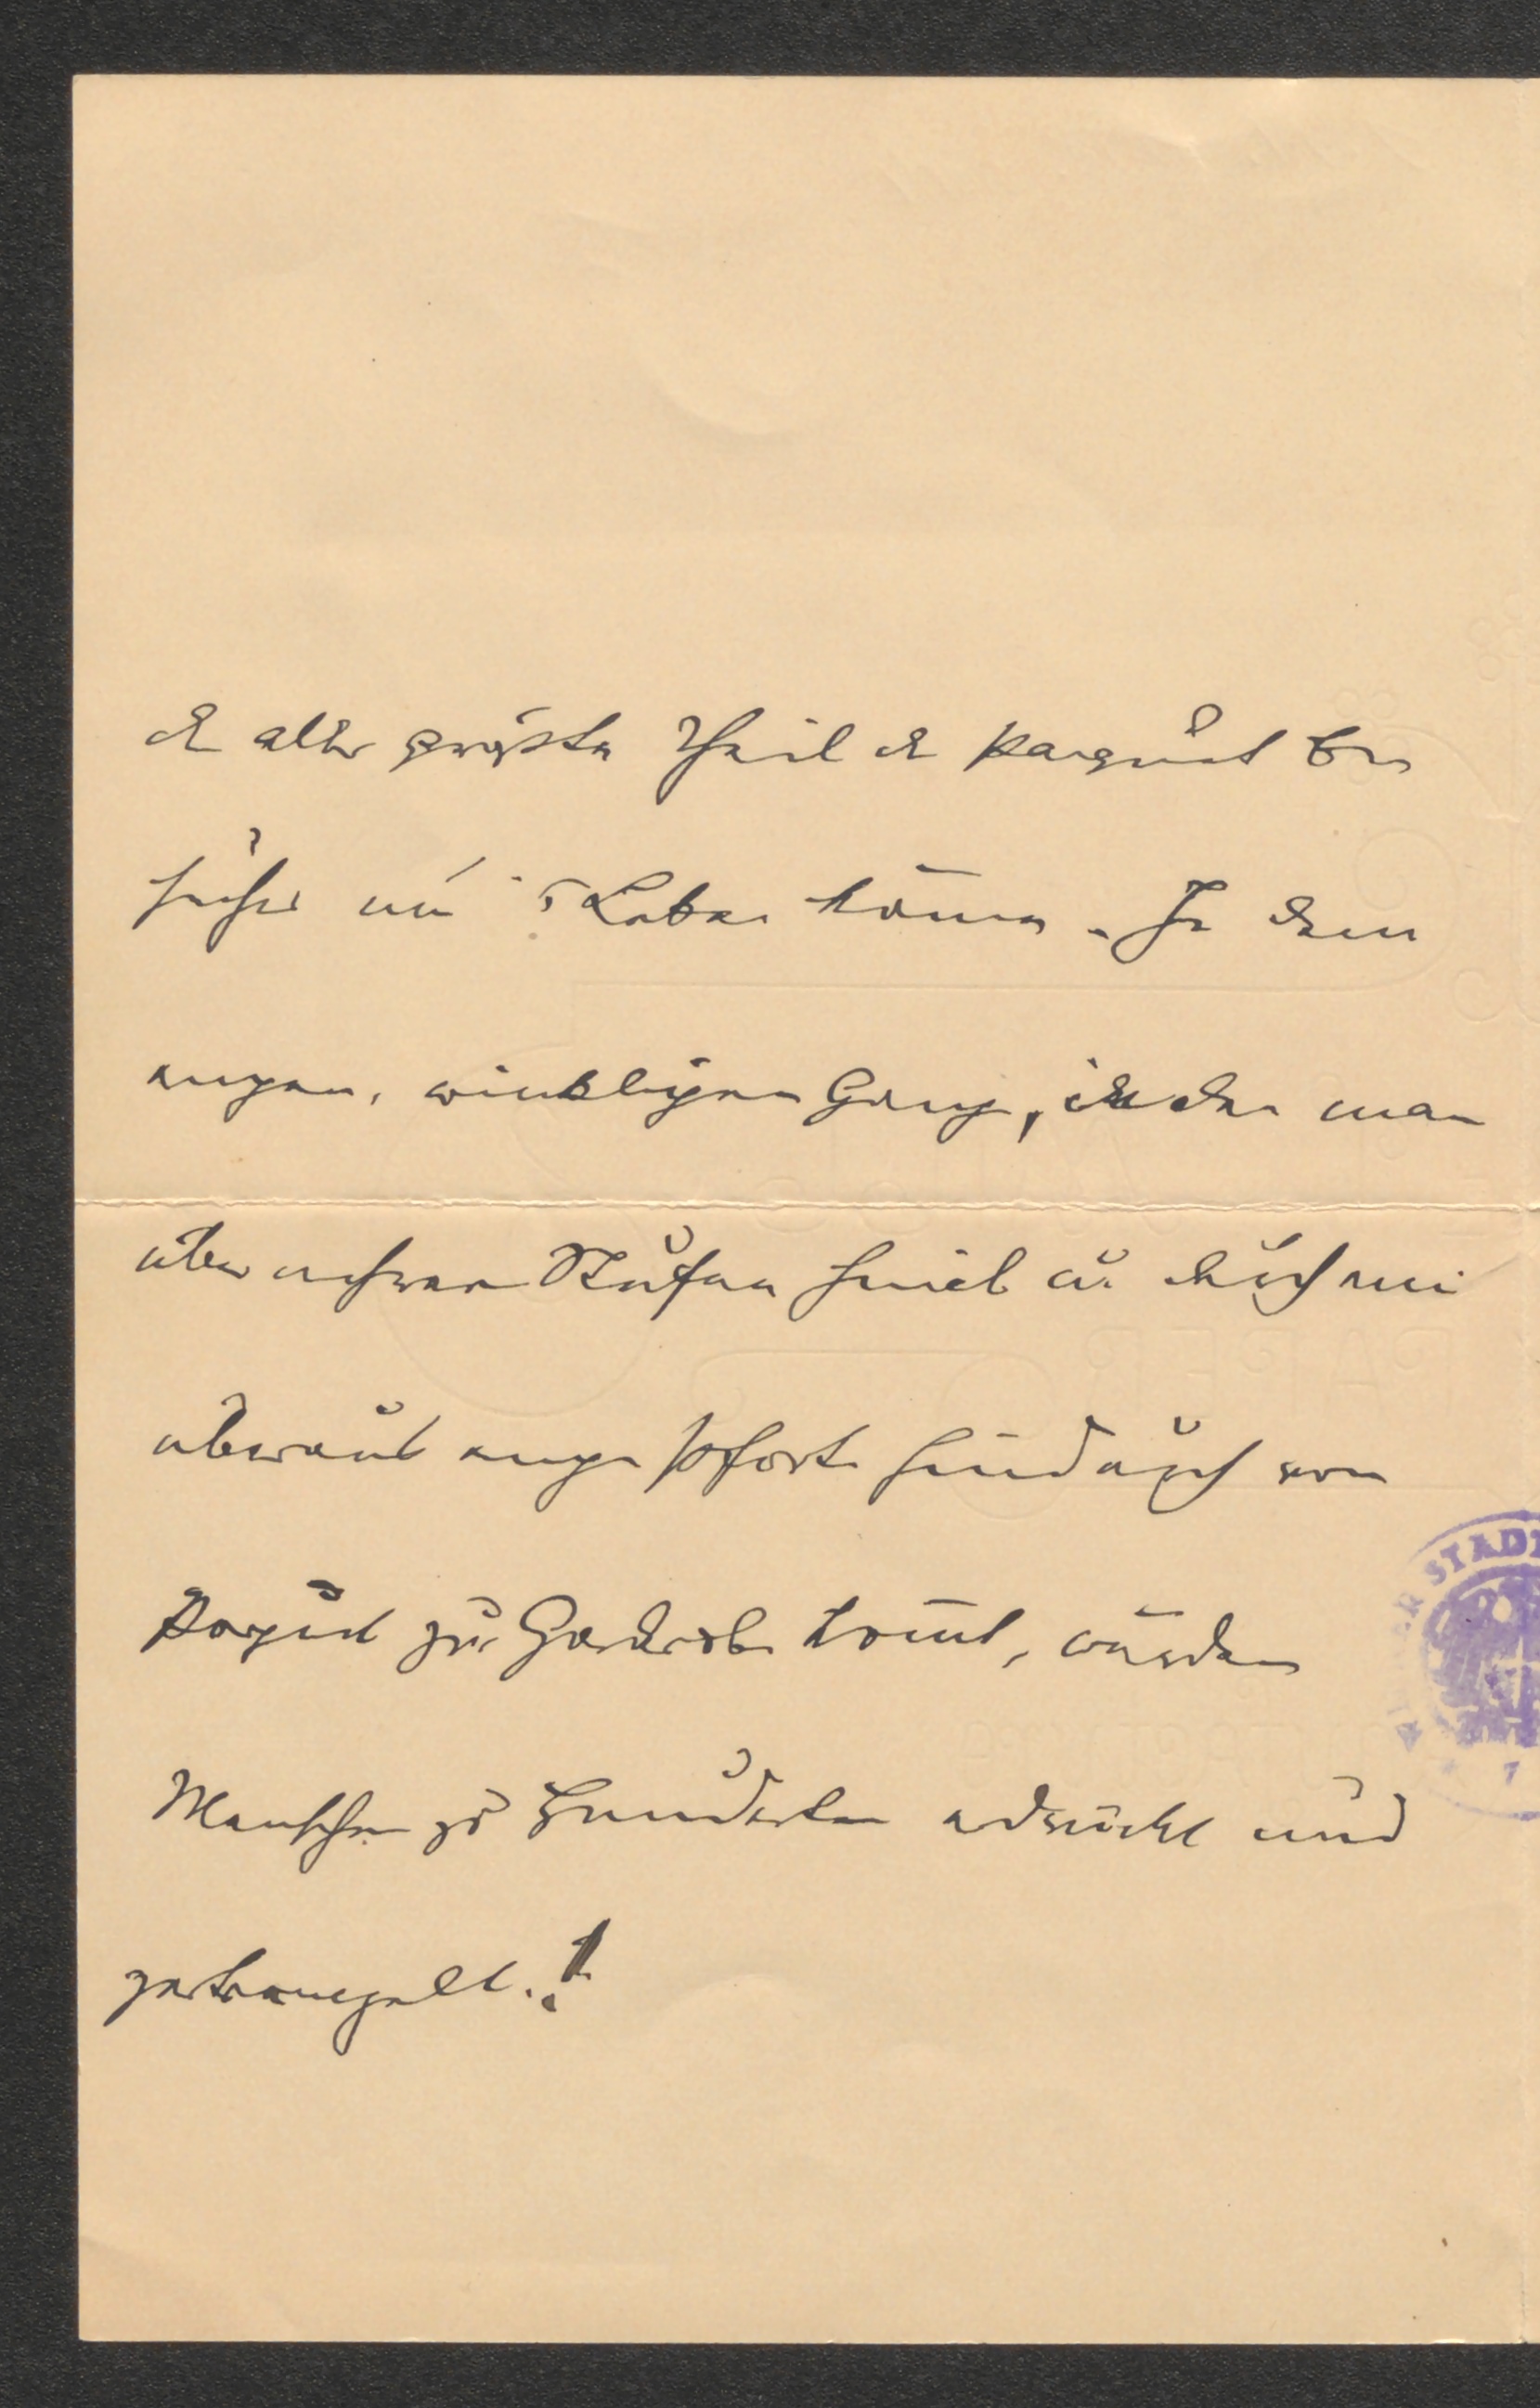 der aller grösste Theil der Parquet be
sucher um's Leben kommen. In dem
engen, winkligen Gang, in den man
über mehrere Stufen hinab u. durch eine
überaus enge Pforte hindurch vom
Parquet zur Garderobe kommt, würden
Menschen zu Hunderten erdrückt und
zertrampelt.!
STADT
7